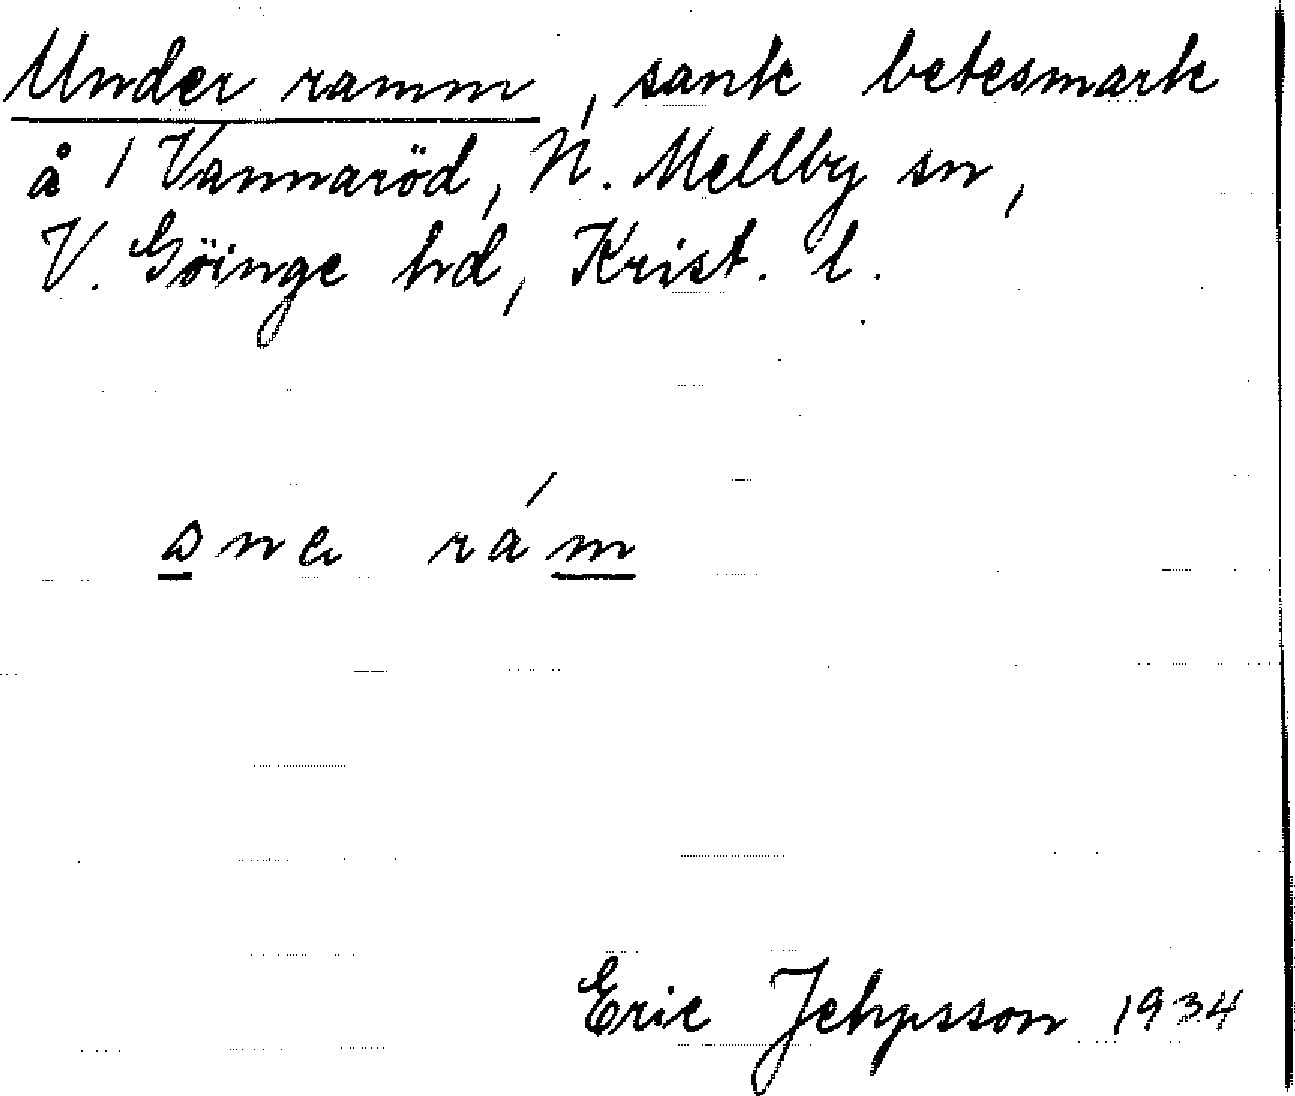 Under ramm, sank betesmark
å 1 Vannaröd, N. Mellby sn,
V. Göinge hd, Krist. l.
rám
Eric Jehpsson 1934